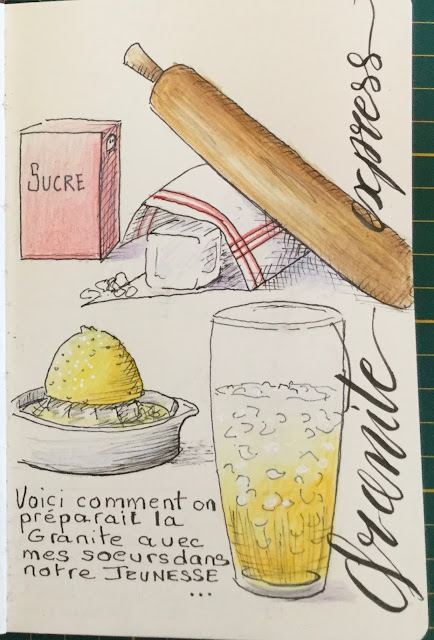 Granite express
SUCRE
Voici comment on
préparait la
Granite avec
mes soeurs dans
notre JEUNESSE
...